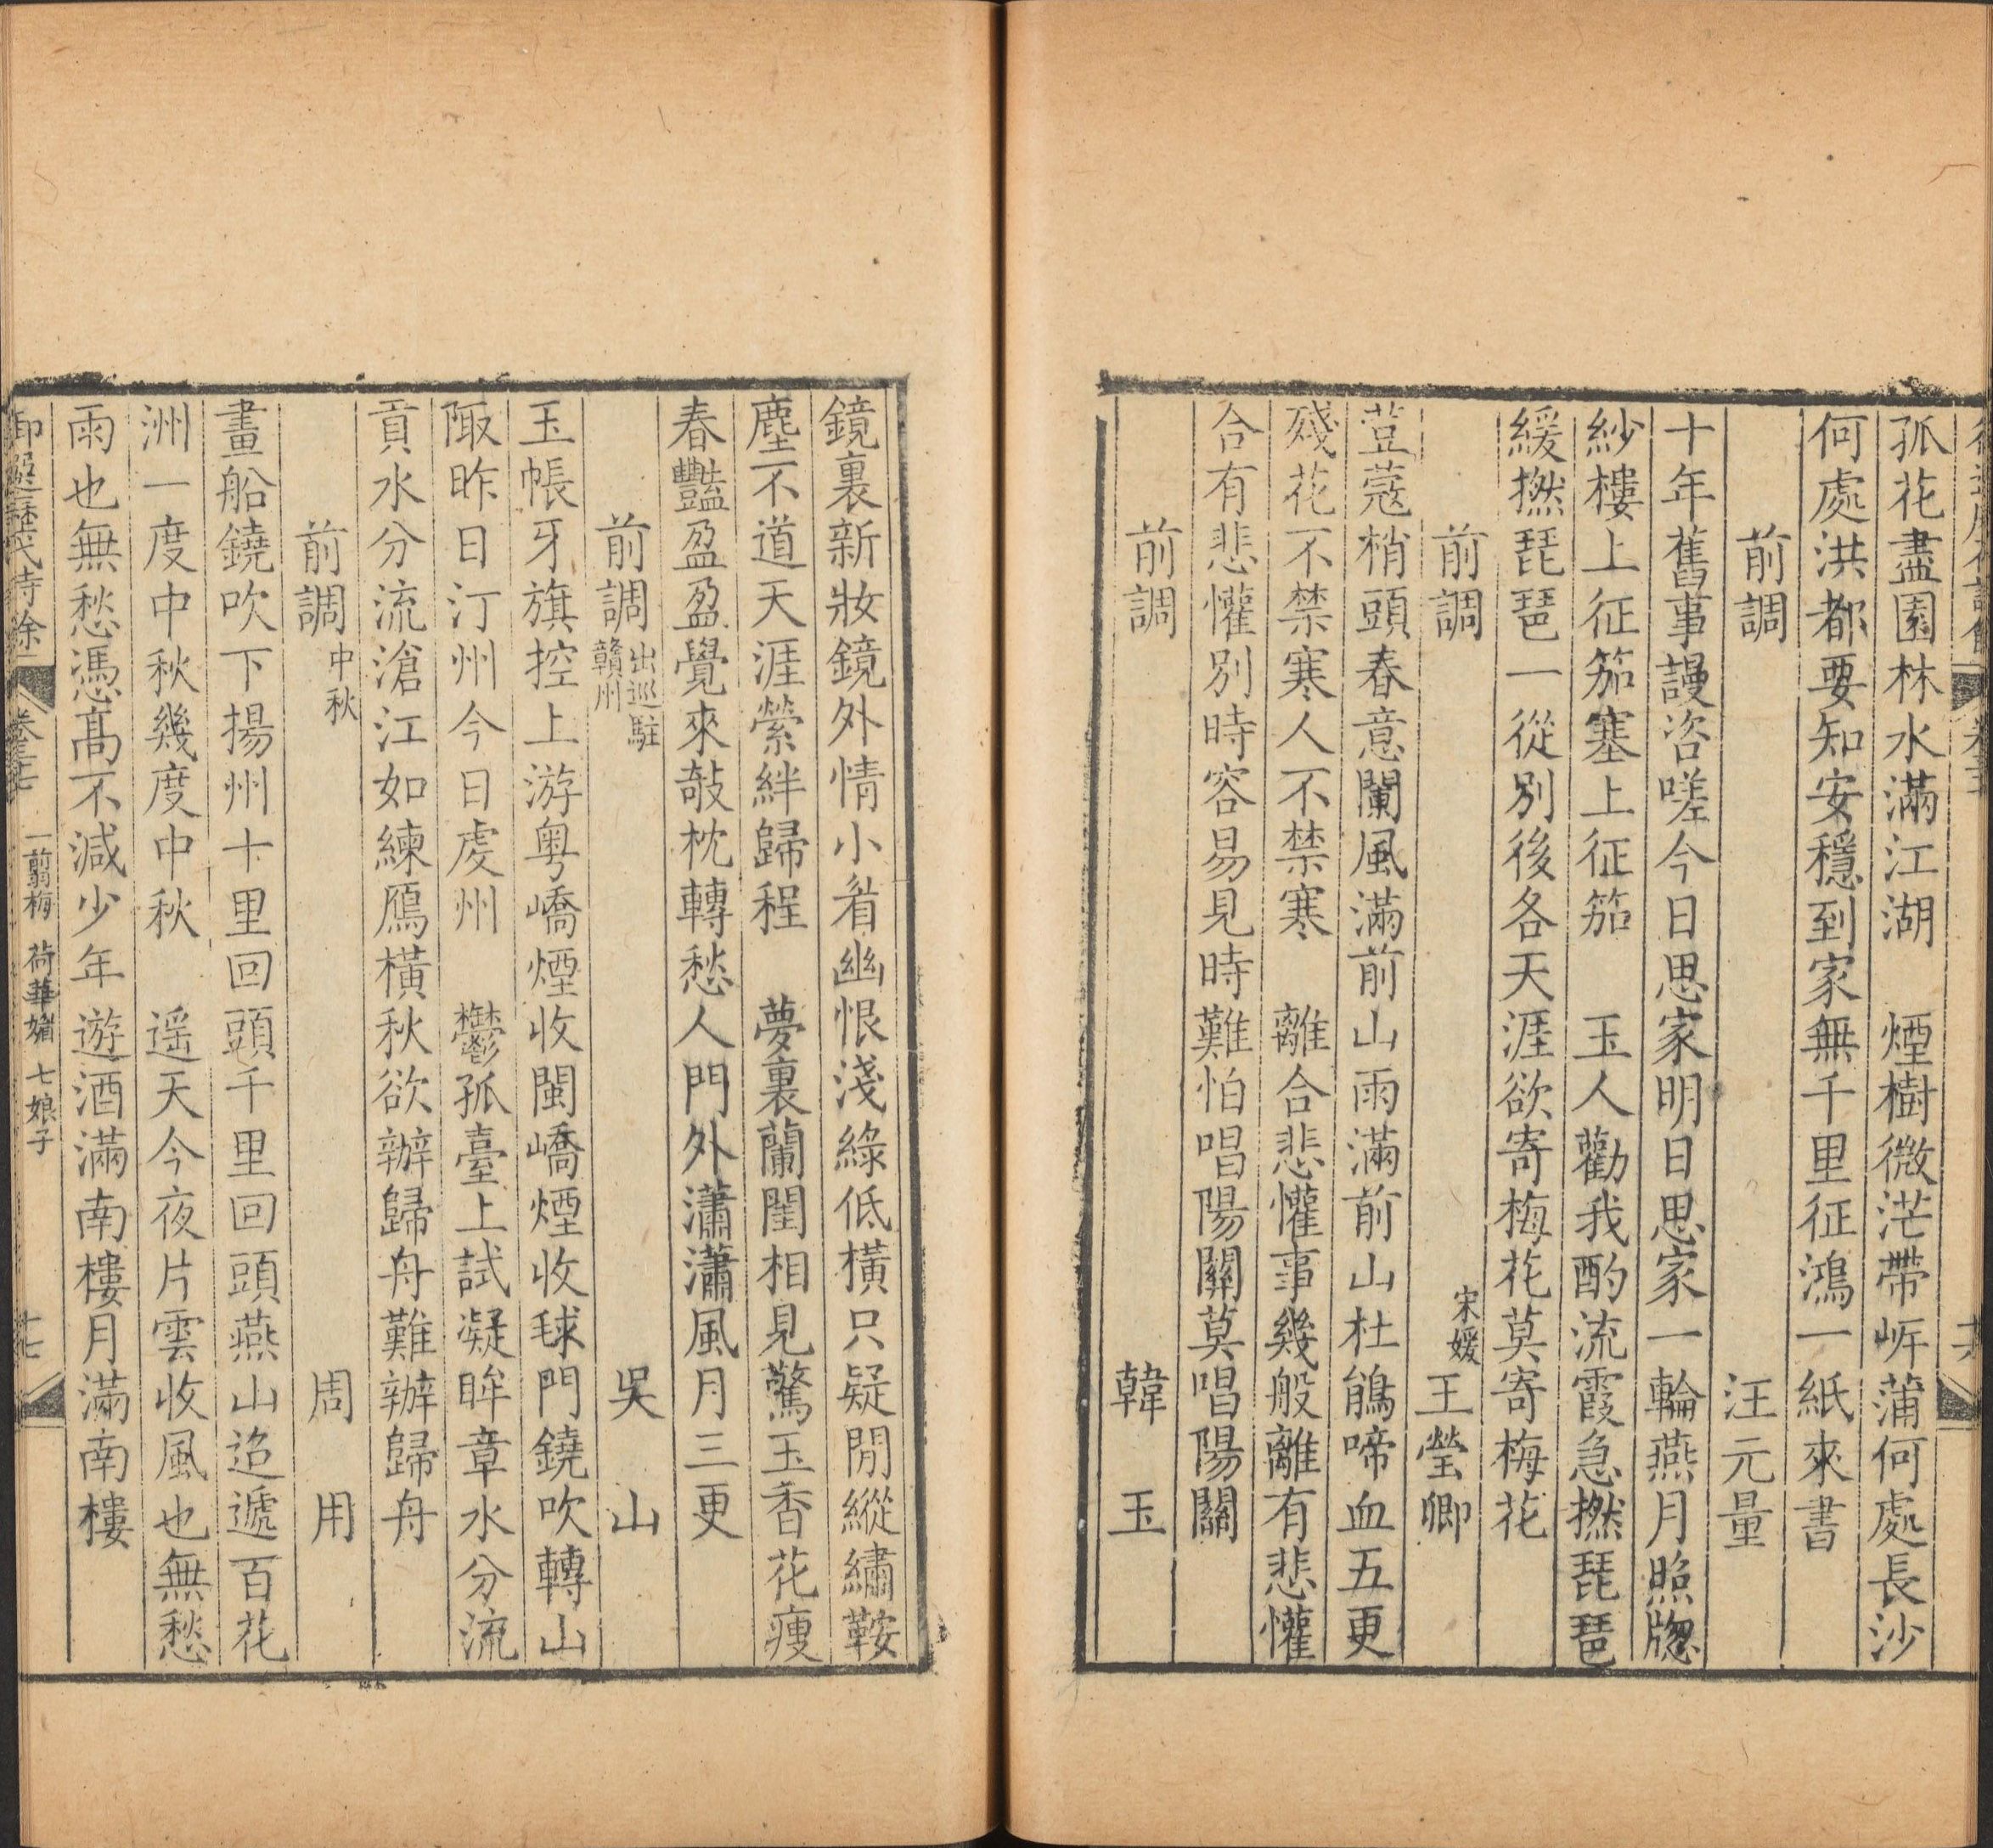 孤花盡園林水滿江湖　煙樹微茫帶岍蒲何處長沙
何處洪都要知安穩到家無千里征鴻一紙來書
前調　汪元量
十年舊事謾咨嗟今日思家明日思家一輪燕月照牕
紗樓上征笳塞上征笳　玉人勸我酌流霞急撚琵琶
緩撚琵琶一從別後各天涯欲寄梅花莫寄梅花
前調　宋媛　王瑩卿
荳蔻梢頭春意闌風滿前山雨滿前山杜鵑啼血五更
殘花不禁寒人不禁寒　離合悲懽事幾般離有悲懽
合有悲懽別時容易見時難怕唱陽關莫唱陽關
前調　韓玉
鏡裏新妝鏡外情小眉幽恨淺綠低橫只疑閒縱繡鞍
塵不道天涯縈絆歸程　夢裏蘭閨相見驚玉香花瘦
春豔盈盈覺來敧枕轉愁人門外瀟瀟風月三更
前調　出巡駐贛州　吳山
玉帳牙旗控上游粤嶠煙收閩嶠煙收毬門鐃吹轉山
陬昨日汀州今日虔州　鬱孤臺上試凝眸章水分流
貢水分流滄江如練鴈橫秋欲辦歸舟難辦歸舟
前調　中秋　周用
畫船鐃吹下揚州十里回頭千里回頭燕山迢遞百花
洲一度中秋幾度中秋　遥天今夜片雲收風也無愁
雨也無愁憑髙不減少年遊酒滿南樓月滿南樓
御選歷代詩餘　一翦梅　荷華媚　七娘子　十七